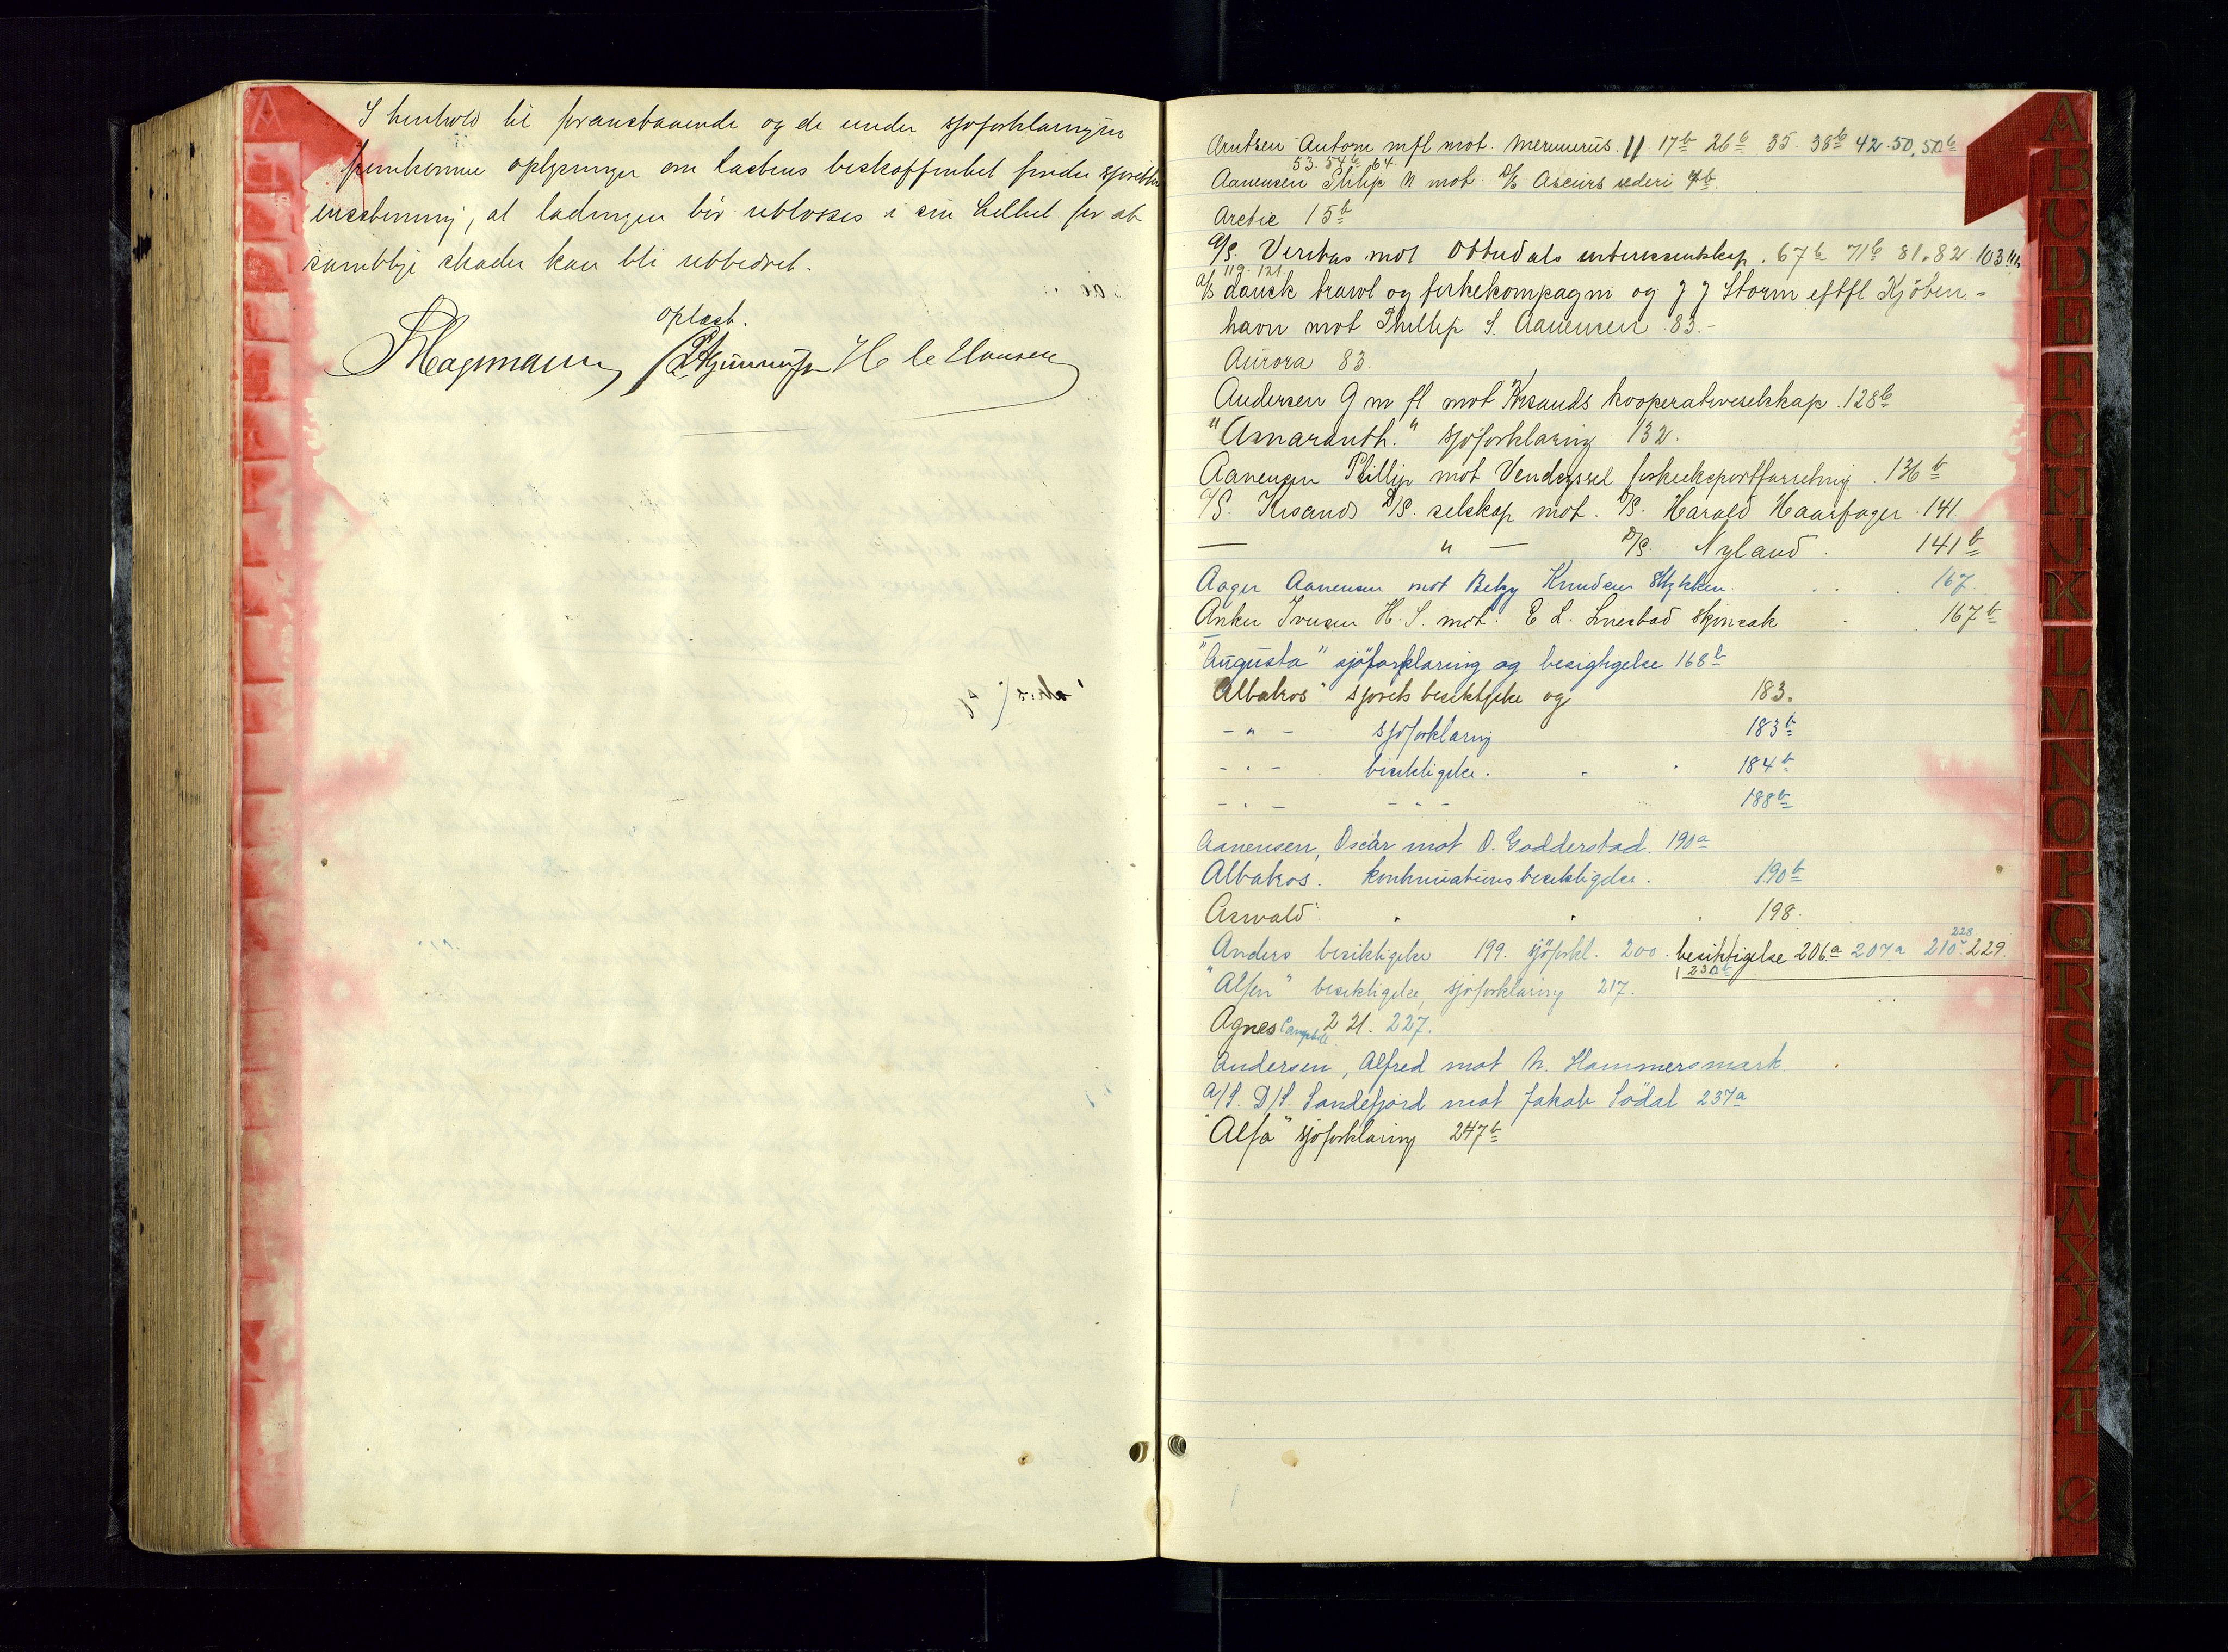 I henhold til foranstaaende og de under sjøforklaringen
fremkomne oplysninger om lastens beskaffenhet finder sjøretten
enstemmig, at ladningen bör utlosses i sin helhet for at
samtlige skader kan bli utbedret.
Oplæst.
Hagemann H C Hansen
Arntzen Antom mfl mot Mercurius 11 17b 26b 35. 38b 42. 50. 50b
53. 54b 64.
Aanensen Philip N mot D/S Ascurs rederi 4b.
Arctic 15b
A/S. Veritas mot Ottudals interessentskap. 67b 71b 81. 82. 103
119. 121.
A/S dansk trawl og fiskekompagni og J J Storm eftfl Kjöben-
havn mot Phillip S. Aanensen 83.-
Aurora 83.
Andersen G m fl mot Krsands kooperativeselskap 128b
"Amaranth." sjöforklaring 132.
Aanensen Phillip mot Vendsyssel fiskeeksportforretning. 136b
A/S. Krsands D/S. selskap mot. D/S. Harald Haarfager. 141
— " — D/S. Nyland. 141b
Aager Aanensen mot Betzy Knudsen Stykken. 167.
Anker Iversen H. S. mot. E L. Lnestad skjönsak 167b
"Augusta" sjöforklaring og besigtigelse 168b
Albatros" sjorets besiktigelse og 183.
- " - sjöforklaring 183b
- " - besiktigelse. 184b
- " - - " - 188b
Aanensen, Oscar mot O. Godderstad. 190a
Albatros. kontinuationsbesiktigelse. 190b
Aswald" 198.
Anders besiktigelse 199. sjöforkl. 200. besiktigelse 206a 207a 210. 228 229.
230b
"Alfen" besiktigelse, sjöforklaring 217.
Agnes Campbell 221. 227.
Andersen, Alfred mot N. Hammersmark.
A/S. D/S. Sandefjord mot Jakob Södal 237a
"Alfa" sjöforklaring 247b
A
B
C
D
E
F
G
H
J
K
L
M
N
O
P
Q
R
S
T
U
V
X
Y
Z
Æ
Ø